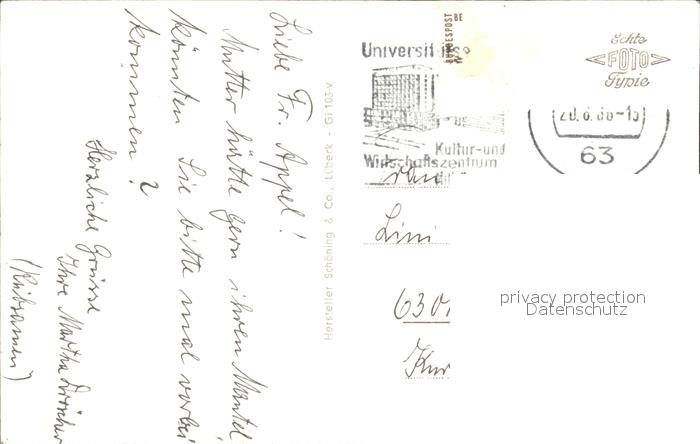 Liebe Fr. Appel!
Mutter hätte gern ihren Mantel,
könnten Sie bitte mal vorbei
kommen?
Herzliche Grüsse
Ihre Martha
Hersteller Schöning & Co., Lübeck - Gi 103-V
Universitäts
Kultur-und
Wirtschaftszentrum
BUNDESPOST
BE
Echte
FOTO
Typie
20.6.66-15
63
Lini
630
Kur
privacy protection
Datenschutz